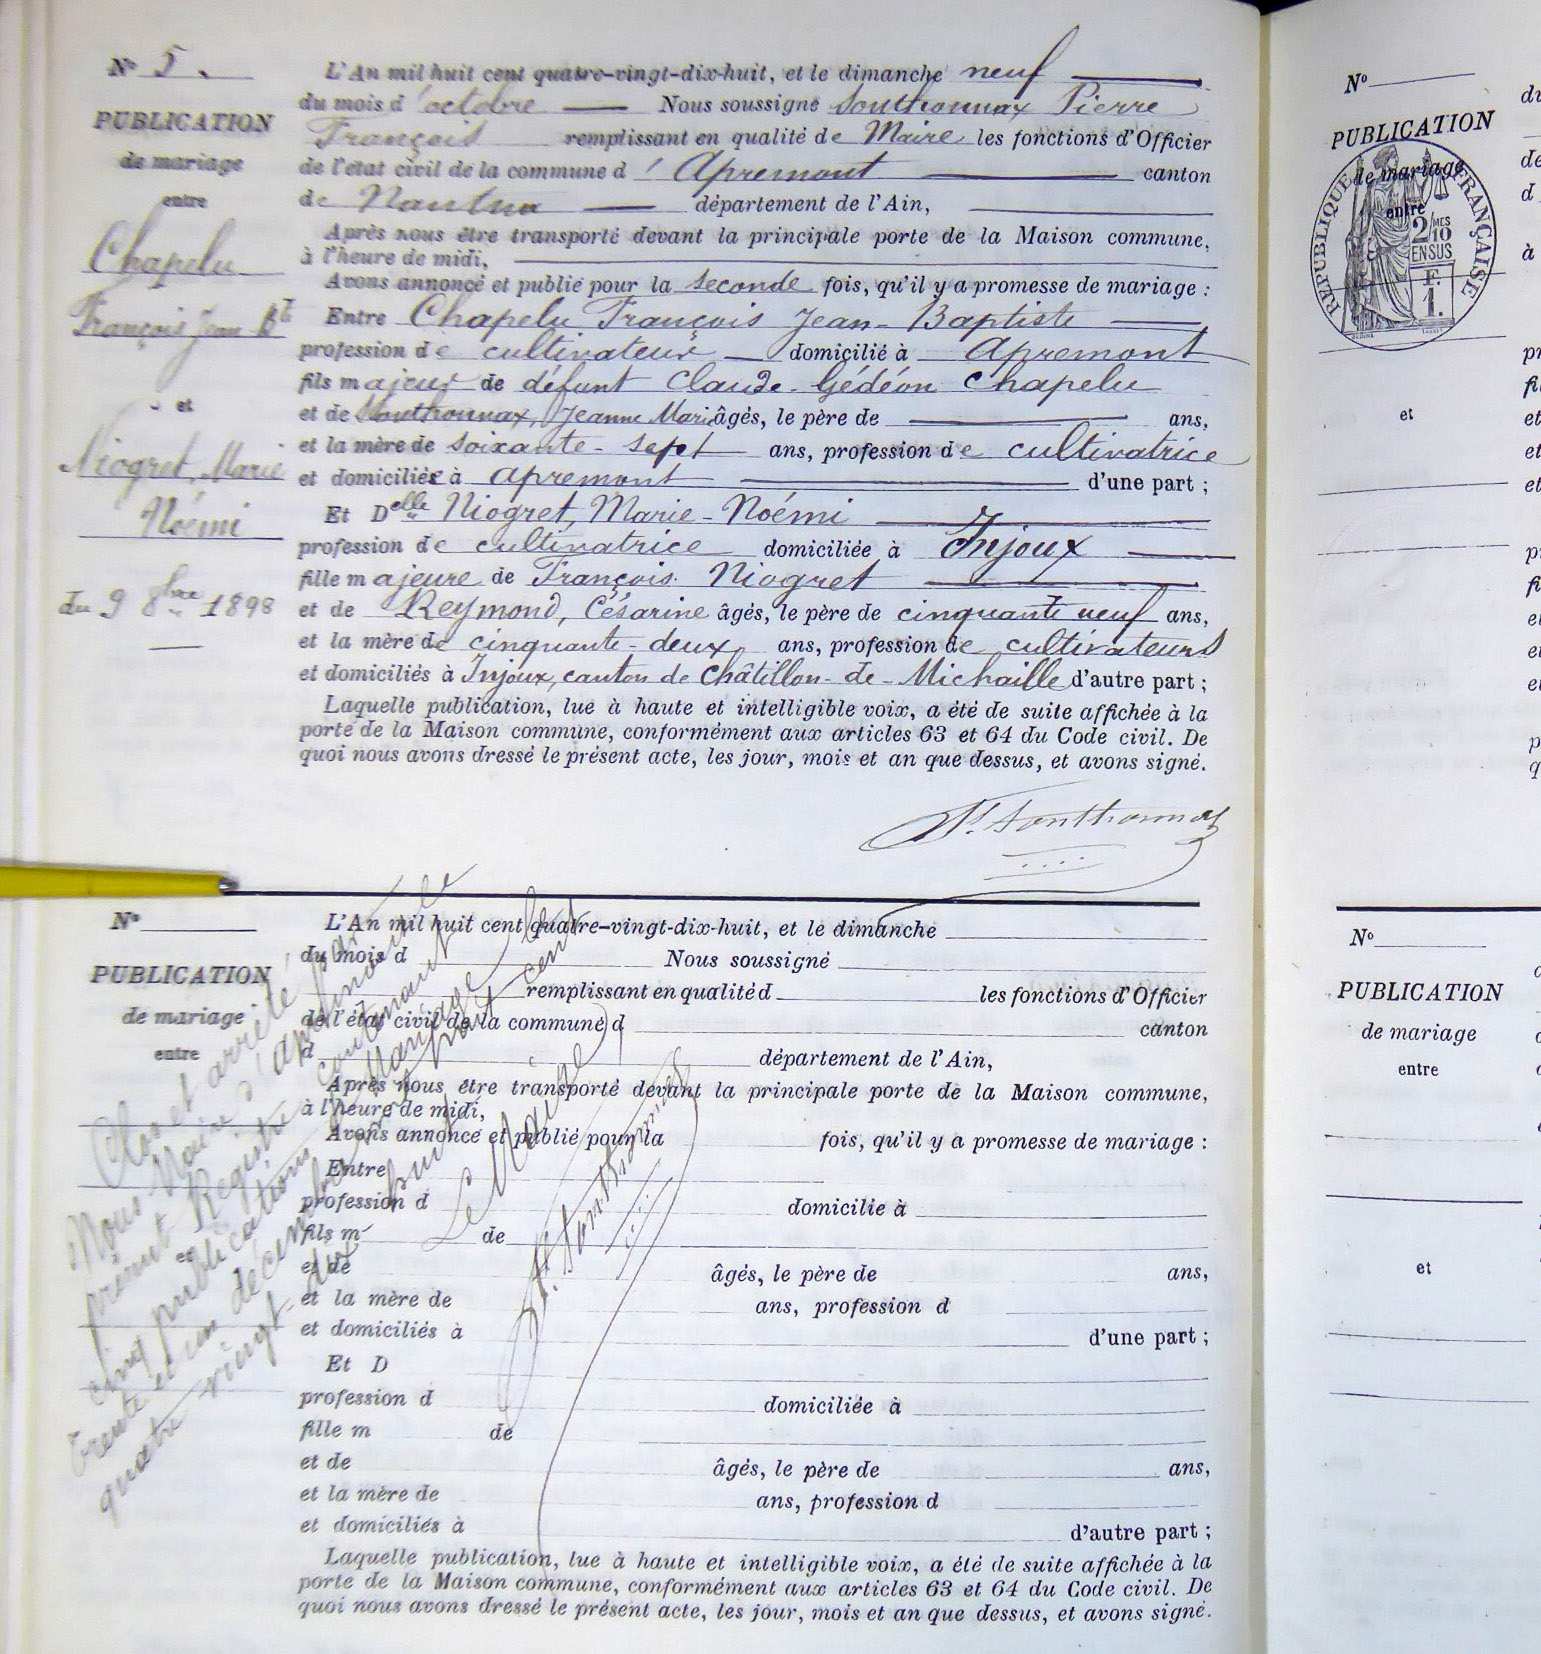 N° 5.
PUBLICATION
de mariage
entre
Chapelu
François Jean Bt
et
Niogret, Marie
Noémi
du 9 8bre 1898
L'An mil huit cent quatre-vingt-dix-huit, et le dimanche neuf
du mois d'octobre Nous soussigné Sonthonnax Pierre
François remplissant en qualité de Maire les fonctions d'Officier
de l'état civil de la commune d'Apremont canton
de Nantua département de l'Ain,
Après nous être transporté devant la principale porte de la Maison commune,
à l'heure de midi,
Avons annoncé et publié pour la seconde fois, qu'il y a promesse de mariage :
Entre Chapelu François Jean-Baptiste
profession de cultivateur domicilié à Apremont
fils majeur de défunt Claude-Gédéon Chapelu
et de Sonthonnax, Jeanne Marie âgés, le père de ans,
et la mère de soixante-sept ans, profession de cultivatrice
et domiciliée à Apremont d'une part ;
Et Delle Niogret, Marie-Noémi
profession de cultivatrice domiciliée à Injoux
fille majeure de François Niogret
et de Reymond, Césarine âgés, le père de cinquante neuf ans,
et la mère de cinquante-deux ans, profession de cultivateurs
et domiciliés à Injoux, canton de Châtillon-de-Michaille d'autre part ;
Laquelle publication, lue à haute et intelligible voix, a été de suite affichée à la
porte de la Maison commune, conformément aux articles 63 et 64 du Code civil. De
quoi nous avons dressé le présent acte, les jour, mois et an que dessus, et avons signé.
Sonthonnax
N°
PUBLICATION
de mariage
entre
et
L'An mil huit cent quatre-vingt-dix-huit, et le dimanche
du mois d Nous soussigné
remplissant en qualité d les fonctions d'Officier
de l'état civil de la commune d canton
d département de l'Ain,
Après nous être transporté devant la principale porte de la Maison commune,
à l'heure de midi,
Avons annoncé et publié pour la fois, qu'il y a promesse de mariage :
Entre
profession d domicilié à
fils m de
et de âgés, le père de ans,
et la mère de ans, profession d
et domiciliés à d'une part ;
Et D
profession d domiciliée à
fille m de
et de âgés, le père de ans,
et la mère de ans, profession d
et domiciliés à d'autre part ;
Laquelle publication, lue à haute et intelligible voix, a été de suite affichée à la
porte de la Maison commune, conformément aux articles 63 et 64 du Code civil. De
quoi nous avons dressé le présent acte, les jour, mois et an que dessus, et avons signé.
Clos et arrêté par
Nous Maire d'Apremont le
présent Registre contenant
cinq publications de Mariage le
trente et un décembre mil huit cent
quatre-vingt-dix huit
Le Maire
Sonthonnax
N°
PUBLICATION
de mariage
entre
RÉPUBLIQUE FRANÇAISE
2/10 MES
EN SUS
F.
1.
et
du
de
d
à
pr
fil
et
et
et
pr
fi
et
et
et
p
q
N°
PUBLICATION
de mariage
entre
et